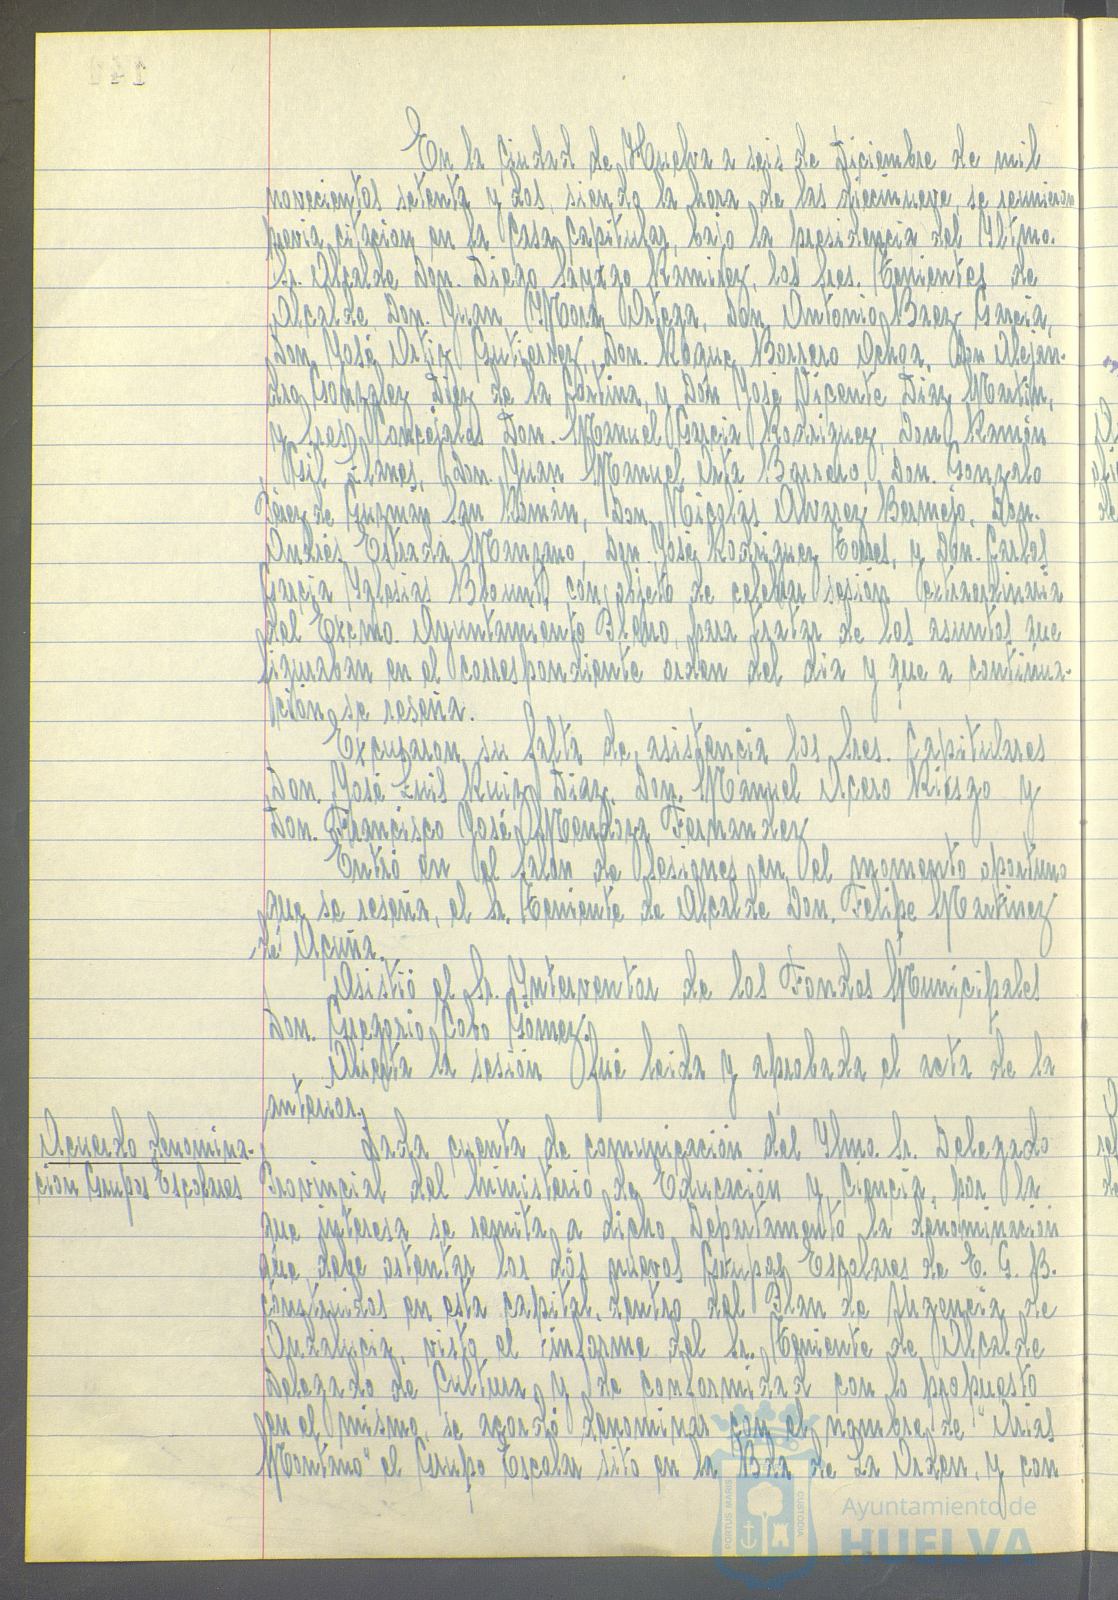 En la Ciudad de Huelva a seis de Diciembre de mil
novecientos setenta y dos, siendo la hora de las diecinueve, se reunieron
previa citación en la Casa Capitular, bajo la presidencia del Iltmo.
Sr. Alcalde Don. Diego Sayago Ramirez, los Sres. Tenientes de
Alcalde, Don. Juan Mora Ortega, Don Antonio Baez Garcia,
Don José Ortiz Gutierrez, Don. Roque Borrero Ochoa, Don Alejan-
dro Gonzalez Diez de la Cortina, y Don José Vicente Diaz Martin,
y Sres. Concejales Don. Manuel Garcia Rodriguez, Don Ramón
Gil Llanes, Don. Juan Manuel Orta Borrero, Don. Gonzalo
Pérez de Guzmán San Román, Don Nicolás Alvarez Bermejo, Don.
Andrés Estrada Manzano, Don José Rodriguez Torres, y Don. Carlos
Garcia Yglesias Blount, con objeto de celebrar sesión extraordinaria
del Excmo. Ayuntamiento Pleno, para tratar de los asuntos que
figuraban en el correspondiente orden del dia y que a continua-
ción se reseña.
Excusaron su falta de asistencia los Sres. Capitulares
Don. José Luis Ruiz Diaz, Don. Manuel Acero Riesgo y
Don. Francisco José Mendoza Fernandez
Entró en el Salón de Sesiones en el momento oportuno
que se reseña, el Sr. Teniente de Alcalde Don. Felipe Martinez
de Acuña.
Asistió el Sr. Ynterventor de los Fondos Municipales
Don. Gregorio Cobo Gómez.
Abierta la sesión fué leida y aprobada el acta de la
anterior.
Acuerdo denomina-
ción Grupos Escolares
Dada cuenta de comunicación del Ylmo. Sr. Delegado
Provincial del Ministerio de Educación y Ciencia, por la
que interesa se remita a dicho Departamento la denominación
que debe ostentar los dós nuevos Grupos Escolares de E. G. B.
construidos en esta capital, dentro del Plan de Urgencia de
Andalucia, visto el informe del Sr. Teniente de Alcalde
Delegado de Cultura y de conformidad con lo propuesto
en el mismo, se acordó denominar con el nombre de "Arias
Montano" el Grupo Escolar sito en la Bda de La Orden, y con
PORTUS MARIS
CUSTODIA
Ayuntamiento de
HUELVA